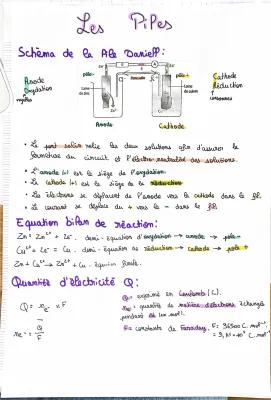 Les Piles
Schéma de la Pile Daniell :
Anode
Oxydation
négative
pôle -
pôle +
Cathode
Réduction
Lame de zinc
Lame de cuivre
Anode
Cathode
• Le pont salin relie les deux solutions afin d'assurer la
fermeture du circuit et l'électro-neutralité des solutions.
• L'anode (-) est le siège de l'oxydation
• La cathode (+) est le siège de la réduction
• Les électrons se déplacent de l'anode vers la cathode dans le fil
• Le courant se déplace du + vers le - dans le fil
Equation bilan de réaction :
Zn = Zn²⁺ + 2e⁻ . demi-équation d'oxydation → anode → pole -
Cu²⁺ + 2e⁻ = Cu . demi-équation de réduction → cathode → pole +
Zn + Cu²⁺ → Zn²⁺ + Cu . équation finale.
Quantité d'électricité Q :
Q = ne⁻ × F
ne⁻ = Q/F
Q = exprimé en Coulombs (C).
ne⁻ = quantité de matière d'électrons échangés
pendant en mol.
F = constante de Faraday. F = 96500 C.mol⁻¹
= 9,65×10⁴ C.mol⁻¹